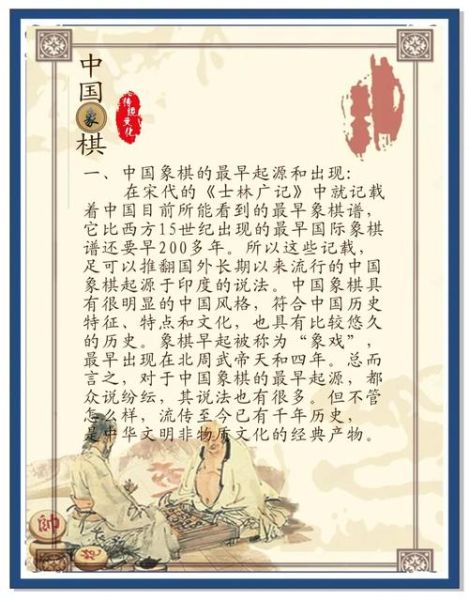 中国象棋
传统文化
一、中国象棋的最早起源和出现：
在宋代的《士林广记》中就记载
着中国目前所能看到的最早象棋谱，
它比西方15世纪出现的最早国际象棋
谱还要早200多年。所以这些记载，
足可以推翻国外长期以来流行的中国
象棋起源于印度的说法。中国象棋具
有很明显的中国风格，符合中国历史
特征、特点和文化，也具有比较悠久
的历史。象棋早起被称为“象戏”，
最早出现在北周武帝天和四年。总而
言之，对于中国象棋的最早起源，都
众说纷纭，其说法也有很多。但不管
怎么样，流传至今已有千年历史，
是中华文明非物质文化的经典产物。
帥